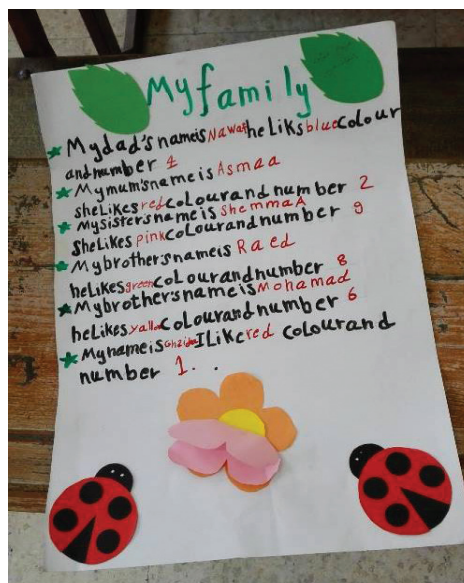 My family
My dad's name is Nawaf he Liks blue Colour
and number 1
My mum's name is Asmaa
she Likes red colour and number 2
My sister's name is shemmaA
she Likes pink colour and number 9
My brother's name is Raed
he Likes green Colour and number 8
My brother's name is Mohamad
he Likes yallow colour and number 6
My name is I Like red colour and
number 1 . .